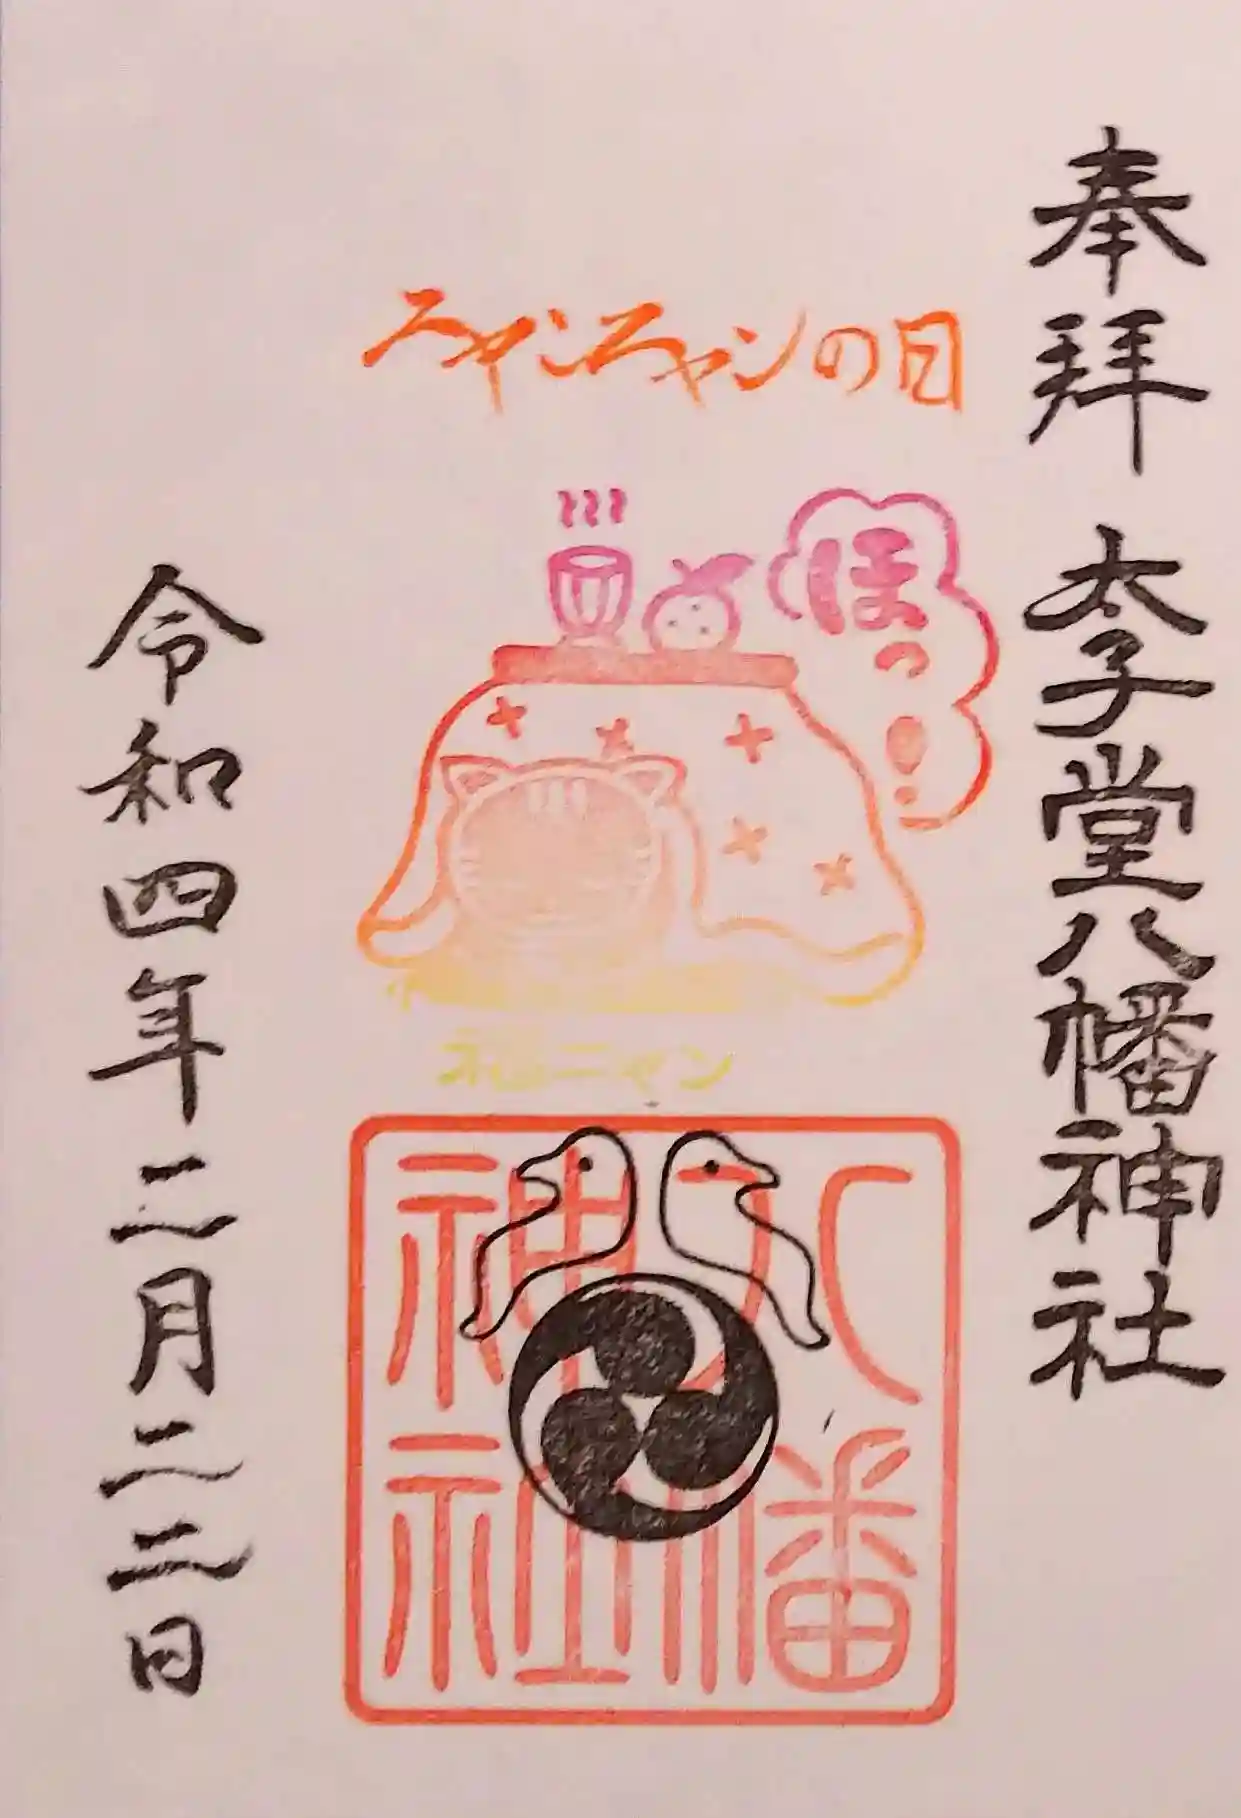 奉拝 太子堂八幡神社
ニャンニャンの日
ほっ!
福ニャン
八幡
神社
令和四年二月二二日